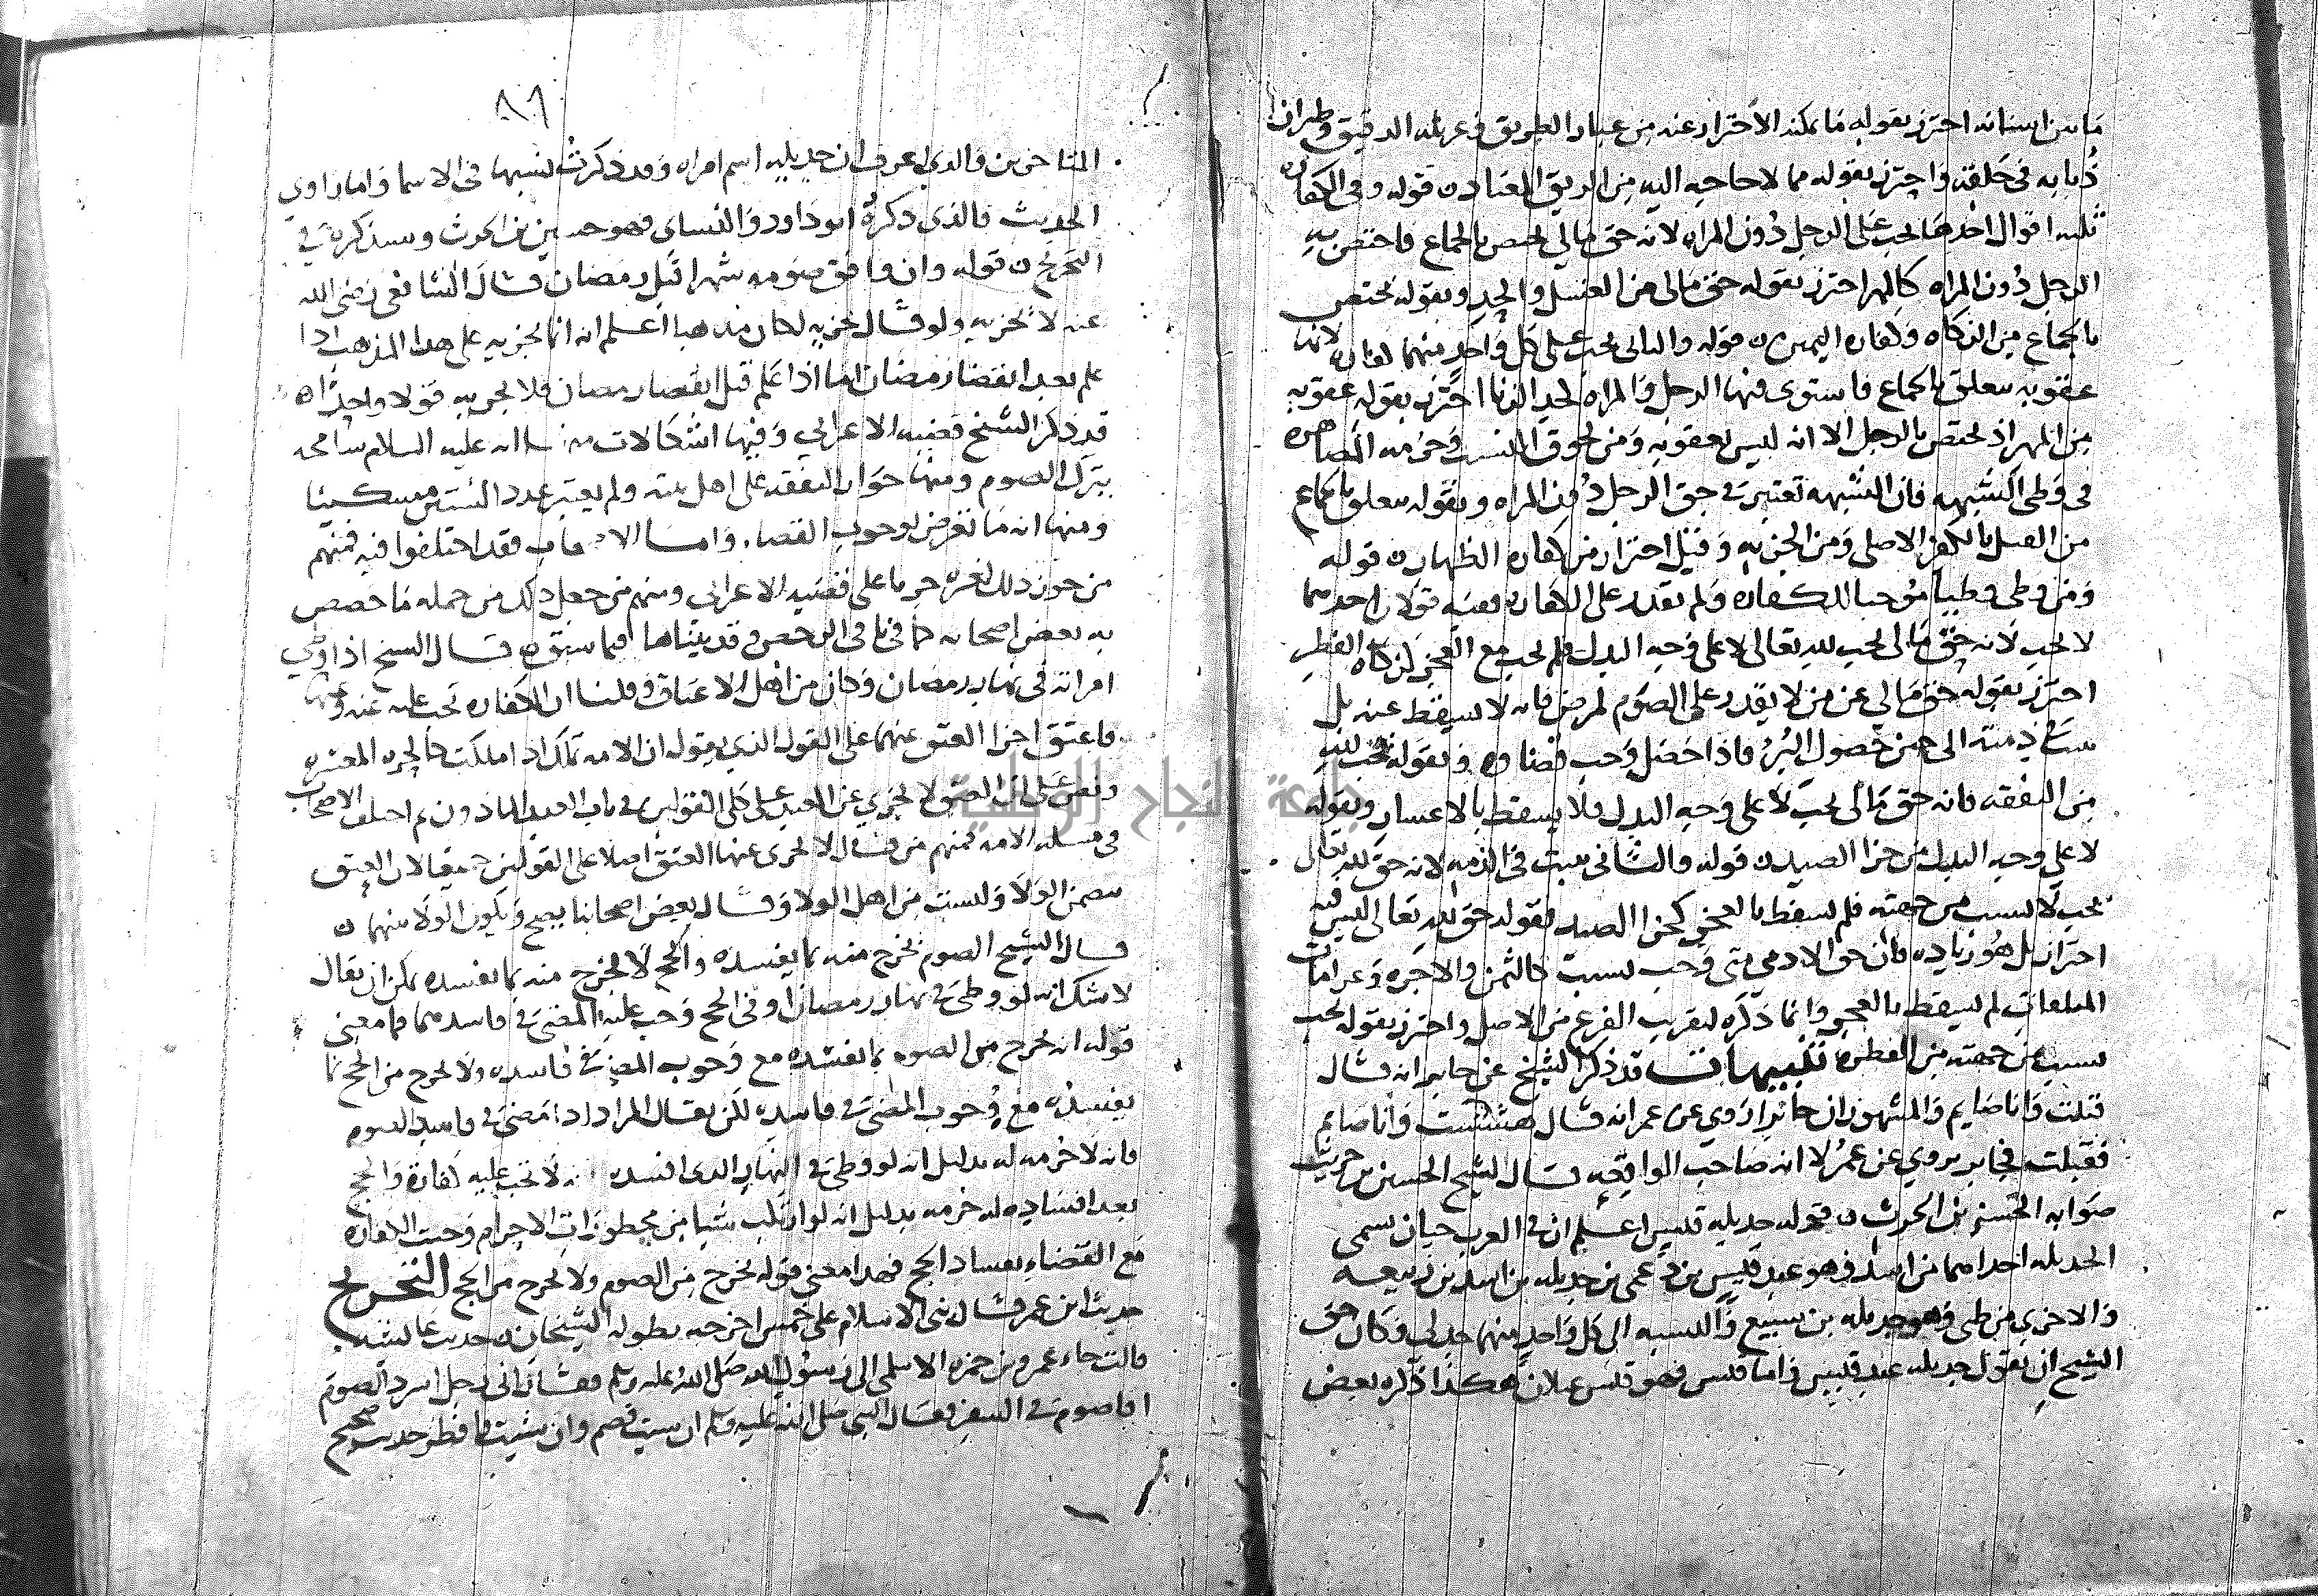 ما بين اسنانه احترز بقوله ما يمكنه الاحتراز عنه من غبار الطريق وغربله الدقيق وطيران
ذبابه في حلقه واحترز بقوله مما لا حاجه اليه من الريق المعتاد ن قوله وفي الكفاره
ثلثه اقوال احدها يجب على الرجل دون المراه لانه حق مالي يختص بالجماع فاختص به
الرجل دون المراه كالمهر احترز بقوله حق مالي من الغسل والحد وبقوله يختص
بالجماع من الزكاه وكفاره اليمين ن قوله والثاني يجب على كل واحد منهما كفاره لانها
عقوبه يتعلق بالجماع فاستوى فيها الرجل والمراه كحد الزنا احترز بقوله عقوبه
من المهر اذ يختص بالرجل الا انه ليس بعقوبه ومن لحوق النسب وحرمه المصاهره
في وطى الشبهه فان الشبهه تعتبر في حق الرجل دون المراه وبقوله يتعلق بالجماع
من القتل بالكفر الاصلى ومن الجزيه وقيل احتراز من كفاره الظهار ن قوله
ومن وطى وطيا موجبا للكفاره ولم يقدر على الكفاره ففيه قولان احدهما
لا يجب لانه حق مالى يجب لله تعالى لا على وجه البدل فلم يجب مع العجز كزكاه الفطر
احترز بقوله حق مالي عن من لا يقدر على الصوم لمرض فانه لا يسقط عنه بل
يبقى في ذمته الى حين حصول البرء فاذا حصل وجب قضاوه وبقوله يجب لله
من النفقه فانه حق مالى يجب لا على وجه البدل فلا يسقط بالاعسار وبقوله
لا على وجه البدل من جزا الصيد ن قوله والثانى يثبت في الذمه لانه حق لله تعالى
يجب لا بسبب من جهته فلم يسقط بالعجز كجزا الصيد فقوله حق لله تعالى ليس فيه
احتراز بل هو زياده فان حق الادمي متى وجب بسبب كالثمن والاجره وغرامات
المتلفات لم يسقط بالعجز وانما ذكره لتقريب الفرع من الاصل واحترز بقوله يجب
بسبب من جهته من الفطره تنبيهات قد ذكر الشيخ عن جابر انه قال
قبلت وانا صايم والمشهور ان جابرا روي عن عمر انه قال هششت وانا صايم
فقبلت فجابر يروي عن عمر لا انه صاحب الواقعه قال الشيخ الحسين بن حريث
صوابه الحسين بن الحرث ن قوله جديله قيس اعلم ان في العرب حيان يسمى
الجديله احداهما من اسد وهو عبد قيس بن دعمى بن جديله بن اسد بن ربيعه
والاخرى من طى وهو جديله بن سبيع والنسبه الى كل واحد منهما جدلي وكان حق
الشيخ ان يقول جديله عبد قيس واما قيس فهو قيس عيلان هكذا ذكره بعض
٨٦
المتاخرين والذي اعرف ان جديله اسم امراه وقد ذكرت نسبها فى الاسما واما راوي
الحديث فالذى ذكره ابو داود والنساى فهو حسين بن الحرث وسنذكره في
التخريج ن قوله وان وافق صومه شهرا قبل رمضان قال الشافعى رضى الله
عنه لا يجزيه ولو قال يجزيه لكان مذهبا اعلم انه انما يجزيه على هذا المذهب اذا
علم بعد انقضا رمضان اما اذا علم قبل انقضا رمضان فلا يجزيه قولا واحدا ه
قد ذكر الشيخ قضيه الاعرابي وفيها اشكالات منها انه عليه السلام سامحه
بترك الصوم ومنها جواز النفقه على اهل بيته ولم يعتبر عدد الستين مسكينا
ومنها انه ما تعرض لوجوب القضاء واما الاصحاب فقد اختلفوا فيه فمنهم
من جوز ذلك لغيره جريا على قضيه الاعرابى ومنهم من جعل ذلك من جمله ما خصص
به بعض اصحابه كما في الرخص وقد بيناها فيما سبق ه قال الشيخ اذا وطي
امراته فى نهار رمضان وكان من اهل الاعتاق وقلنا ان الكفاره تجب عليه عنه وعنها
فاعتق اجزا العتق عنهما على القول الذي يقوله ان الامه تملك اذا ملكت كالحره المعسره
ونص على ان العتق لا يجزي عن العبد على كلى القولين في باب العبد الماذون ثم اختلف الاصحاب
فى مسله الامه فمنهم من قال لا يجزى عنها العتق اصلا على القولين جميعا لان العتق
يتضمن الولا وليست من اهل الولا وقال بعض اصحابنا يصح ويكون الولا منهما ن
قال الشيخ الصوم يخرج منه بما يفسده والحج لا يخرج منه بما يفسده يمكن ان يقال
لا شك انه لو وطى في نهار رمضان او في الحج وجب عليه المضى في فاسدهما فما معنى
قوله انه يخرج من الصوم بما يفسده مع وجوب المضى في فاسده ولا يخرج من الحج بما
يفسده مع وجوب المضى في فاسده لكن يقال المراد اذا مضى في فاسد الصوم
فانه لا حرمه له بدليل انه لو وطى في النهار الذى افسده لا تجب عليه كفاره والحج
بعد افساده له حرمه بدليل انه لو ارتكب شيا من محظورات الاحرام وجبت الكفاره
مع القضاء بفساد الحج فهذا معنى قوله يخرج من الصوم ولا يخرج من الحج التخريج
حديث ابن عمر قال بنى الاسلام على خمس اخرجه بطوله الشيخان ن حديث عايشه
قالت جاء عمرو بن حمزه الاسلمى الى رسول الله صلى الله عليه وسلم فقال انى رجل اسرد الصوم
افاصوم في السفر فقال النبى صلى الله عليه وسلم ان شيت فصم وان شيت فافطر حديث صحيح
جامعة النجاح الوطنية